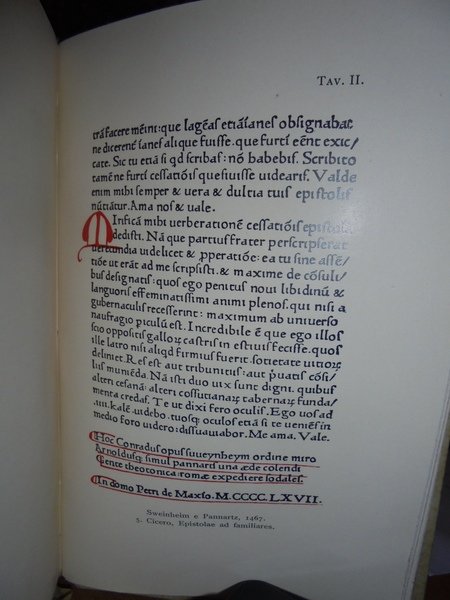 Tav. II.
trā facere mēini: que lagēas etiā ianes obsignabat
ne dicerent ianes aliqua fuisse. que furti eēnt exic/
cate. Sic tu etiā si qd scribas: nō babebis. Scribito
tamē ne furti cessatiōis quesiuisse uidearis. Valde
enim mibi semper & uera & dulcia tuis epistolis
nūtiātur. Ama nos & uale.
Mirifica mibi uerberationē cessatiōis epistola
dedisti. Nā que partius frater perscripserat
uerecundia uidelicet & pperatiōe: ea tu sine assē/
tiōe ut erāt ad me scripsisti. & maxime de cōsuli/
bus designatis: quos ego penitus noui libidinū &
languoris effeminatissimi animi plenos. qui nisi a
gubernaculis recesserint: maximum ab uniuerso
naufragio piculū est. Incredibile ē que ego illos
scio oppositis galloȝ castris in estiuis fecisse. quos
ille latro nisi aliqd firmius fuerit. societate uitioȝ
deliniet. Res est aut tribunitiis: aut puatis cōsi/
liis muniēda. Nā isti duo uix sunt digni. quibus
alteri cesenā: alteri cossutianaȝ tabernaȝ funda/
menta credas. Te ut dixi fero oculis. Ego uos ad
.iiii. kalē. uidebo. tuosq; oculos etiā si te ueniēs in
medio foro uidero: dissuauiabor. Me ama. Vale.
Hoc Conradus opus suueynheym ordine miro
Arnoldusq; simul pannarts una æde colendi
Gente theotonica: romæ expediere sodales.
In domo Petri de Maxīo. M. CCCC. LXVII.
Sweinheim e Pannartz, 1467.
5. Cicero, Epistolae ad familiares.